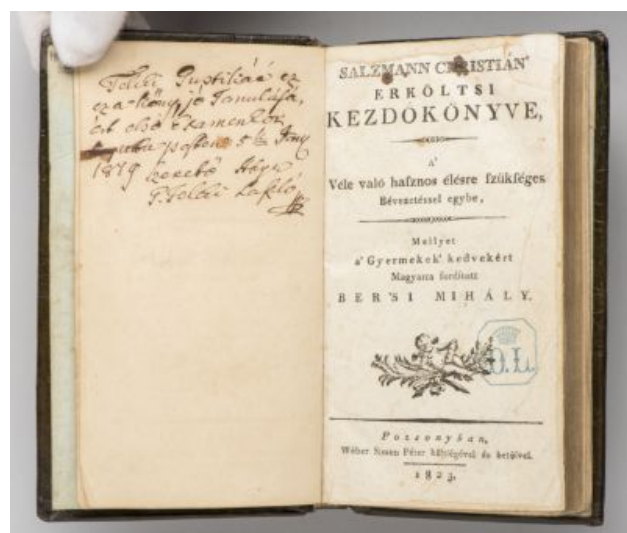 Teleki ez
ez a könyv jó Tanulásá,
ért első Examenkor,
pesten 5
szerető Atya
Teleki László
SALZMANN CHRISTIÁN'
ERKÖLTSI
KEZDŐKÖNYVE,
A'
Véle való hasznos élésre szükséges
Bévezetéssel egybe,
Mellyet
a' Gyermekek' kedvekért
Magyarra fordított
BER'SI MIHÁLY.
O.L.
Pozsonyban,
Wéber Simon Péter költségével és betűivel.
1823.